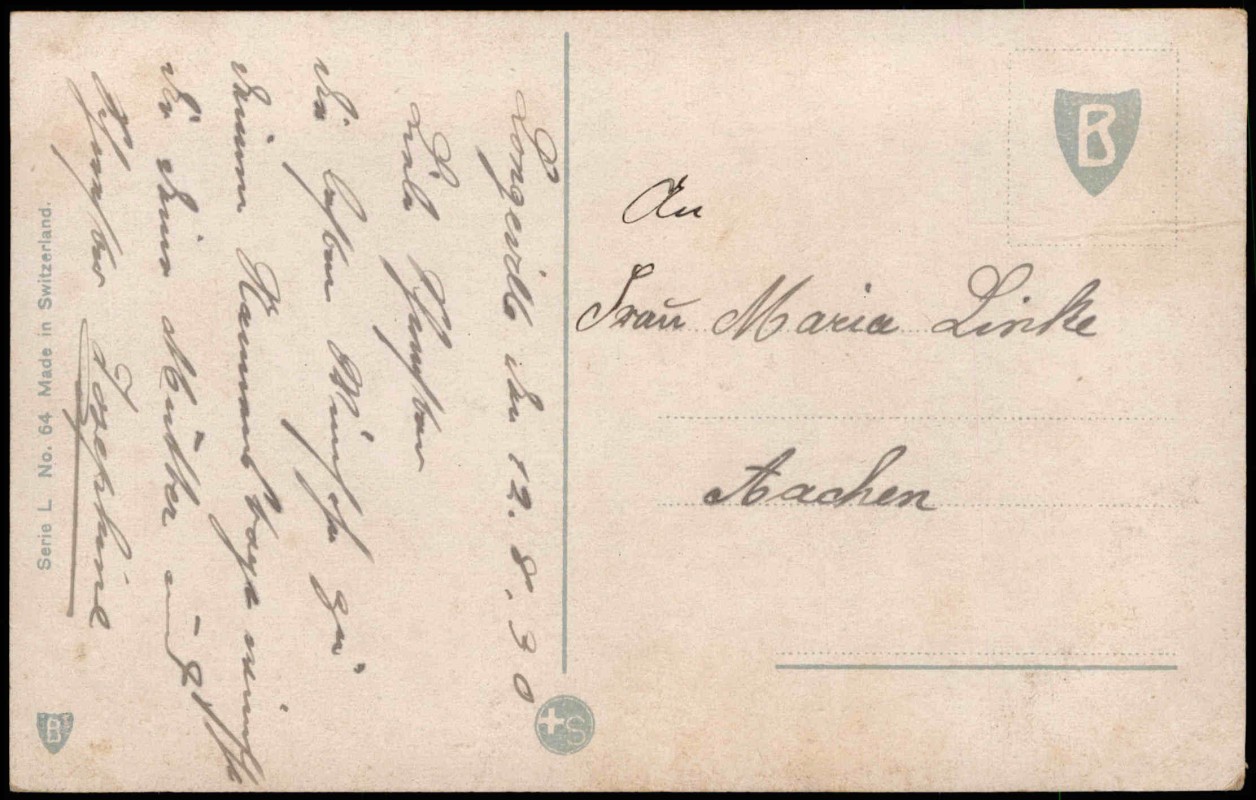 Longeville den 12. 8. 30
Liebe Schwester
Die besten Wünsche zu
Deinem Namenstage wünscht
Dir Deine Mutter
Schwester Josephine
An
Frau Maria Linke
Aachen
B
Serie L No. 64 Made in Switzerland.
B
S